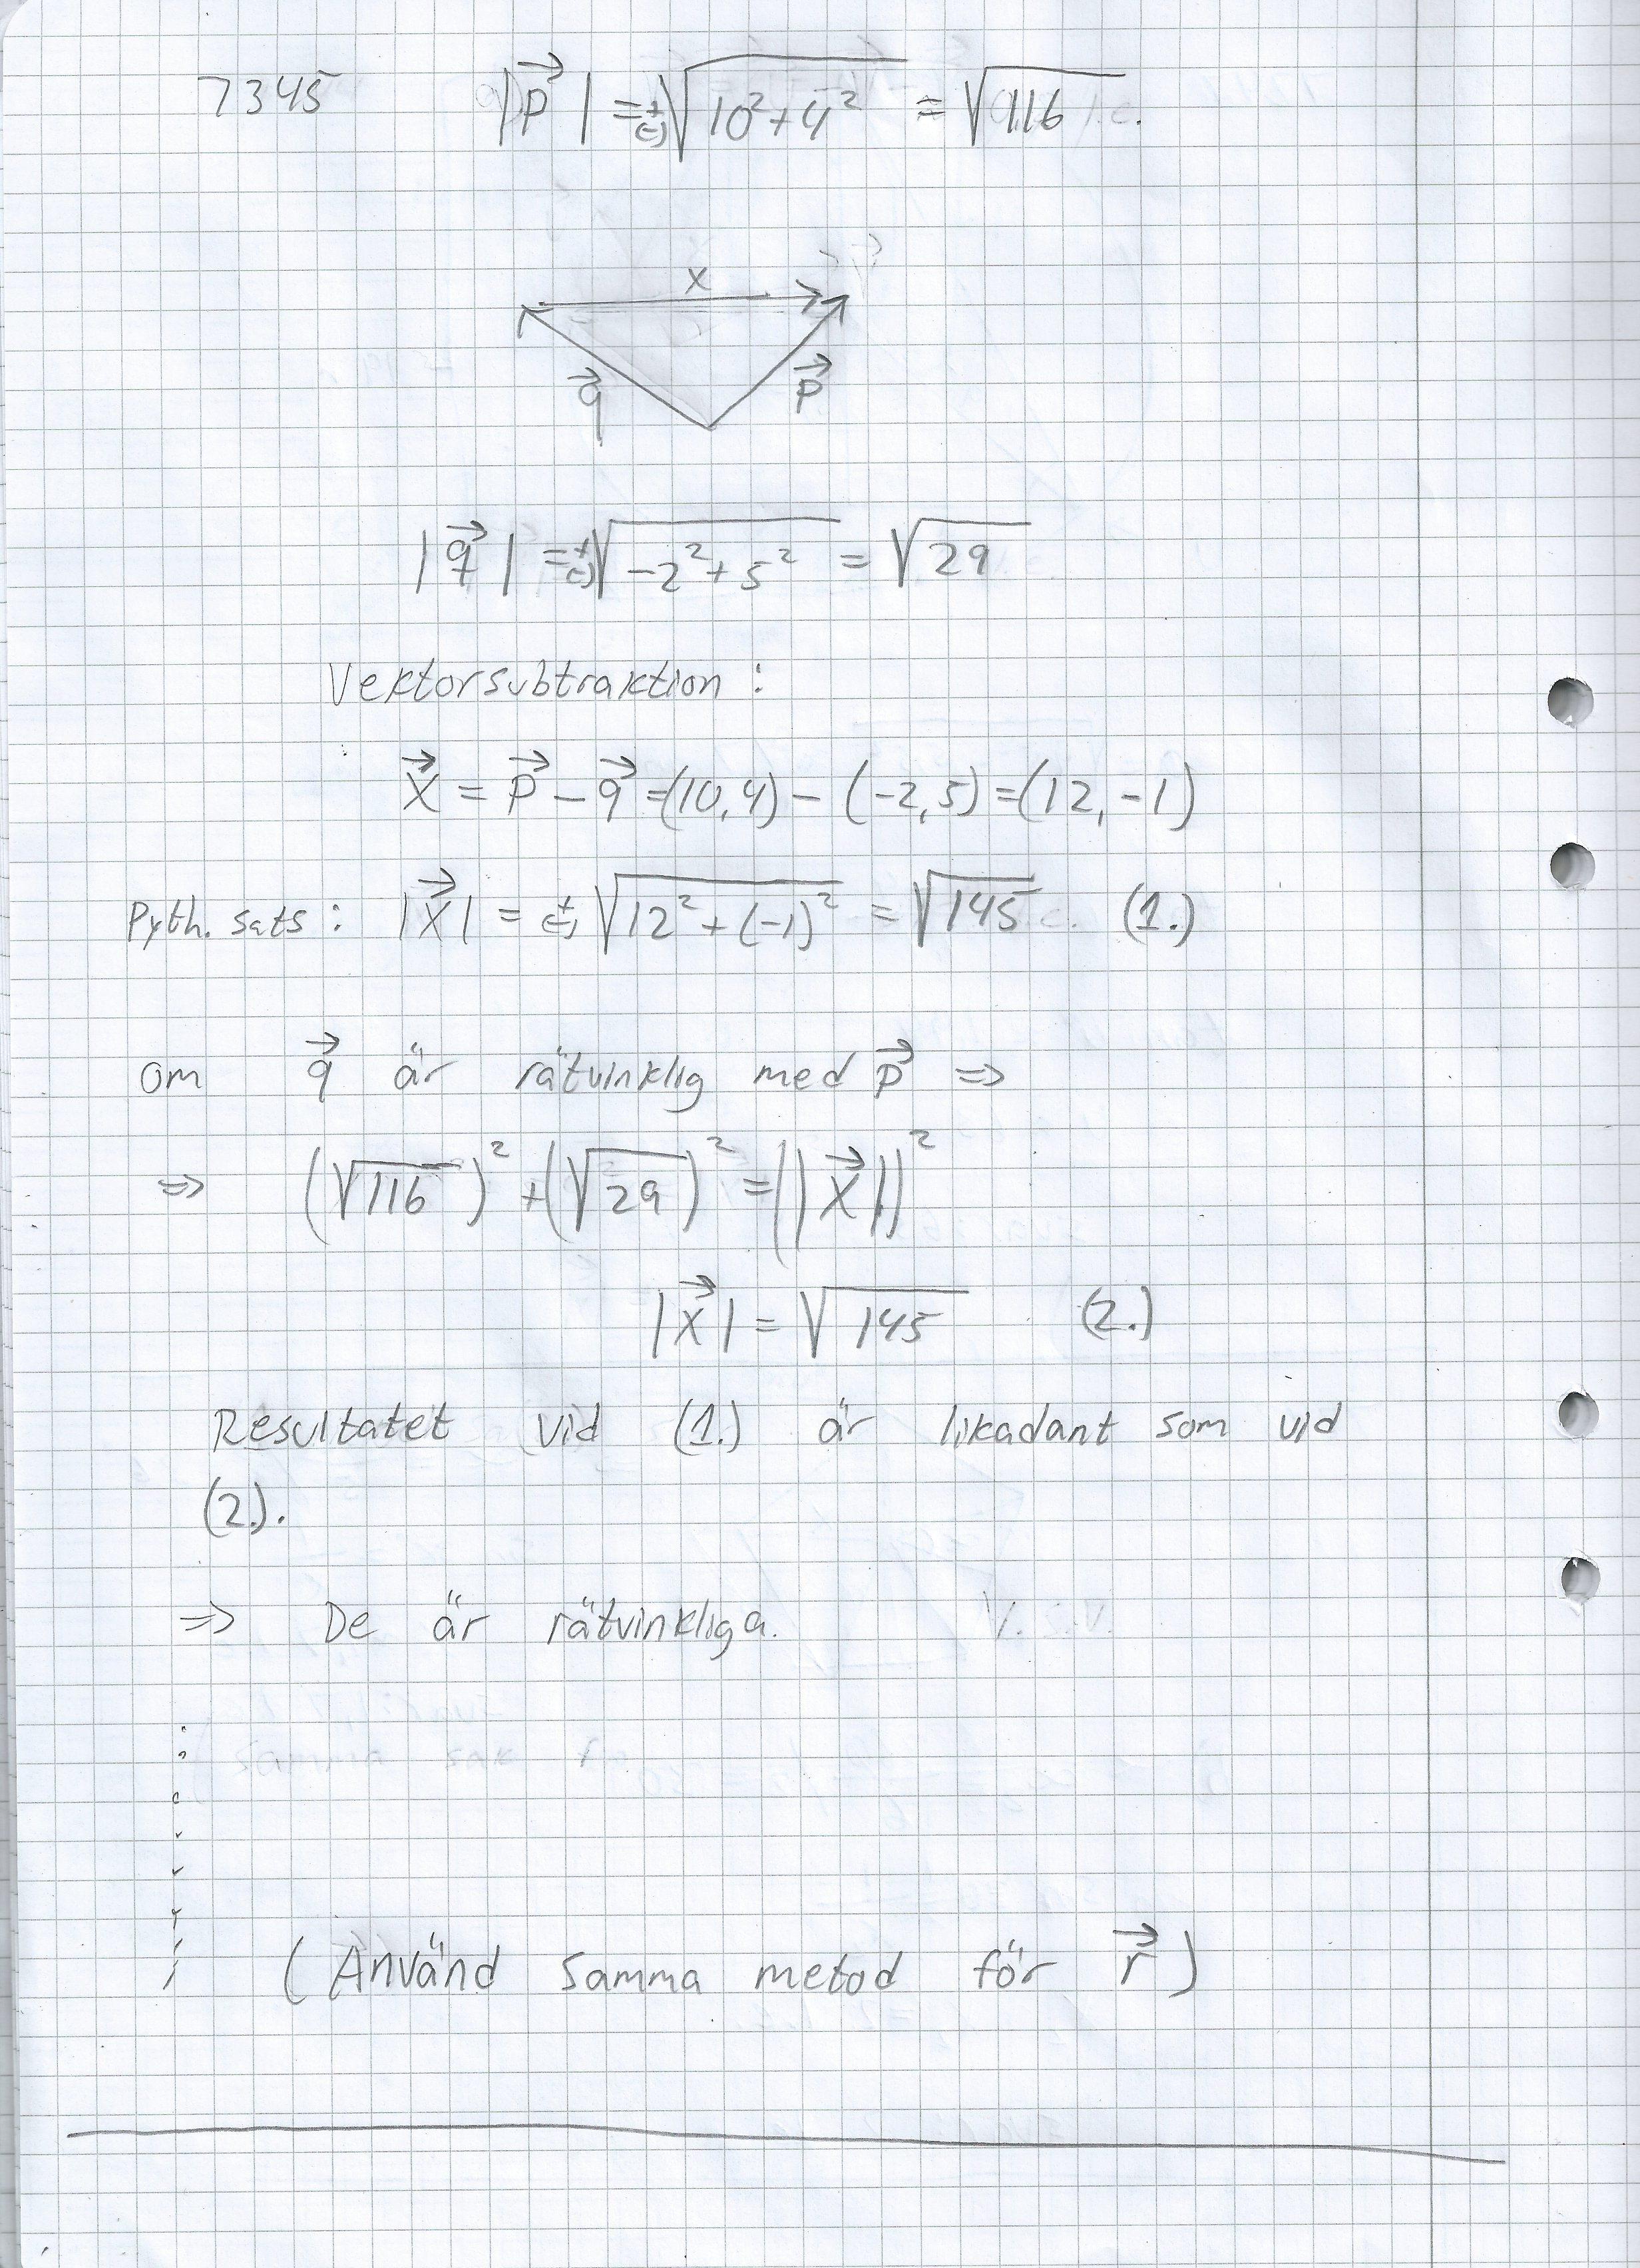 7345 |p⃗| = ±(-)√(10²+4²) = √116
x
q⃗ p⃗
|q⃗| = ±(-)√(-2²+5²) = √29
Vektorsubtraktion:
x⃗ = p⃗ - q⃗ = (10,4) - (-2,5) = (12,-1)
Pyth. sats: |x⃗| = ±(-)√(12²+(-1)²) = √145 (1.)
Om q⃗ är rätvinklig med p⃗ =>
=> (√116)² + (√29)² = (|x⃗|)²
|x⃗| = √145 (2.)
Resultatet vid (1.) är likadant som vid
(2.).
=> De är rätvinkliga.
(Använd samma metod för r⃗)